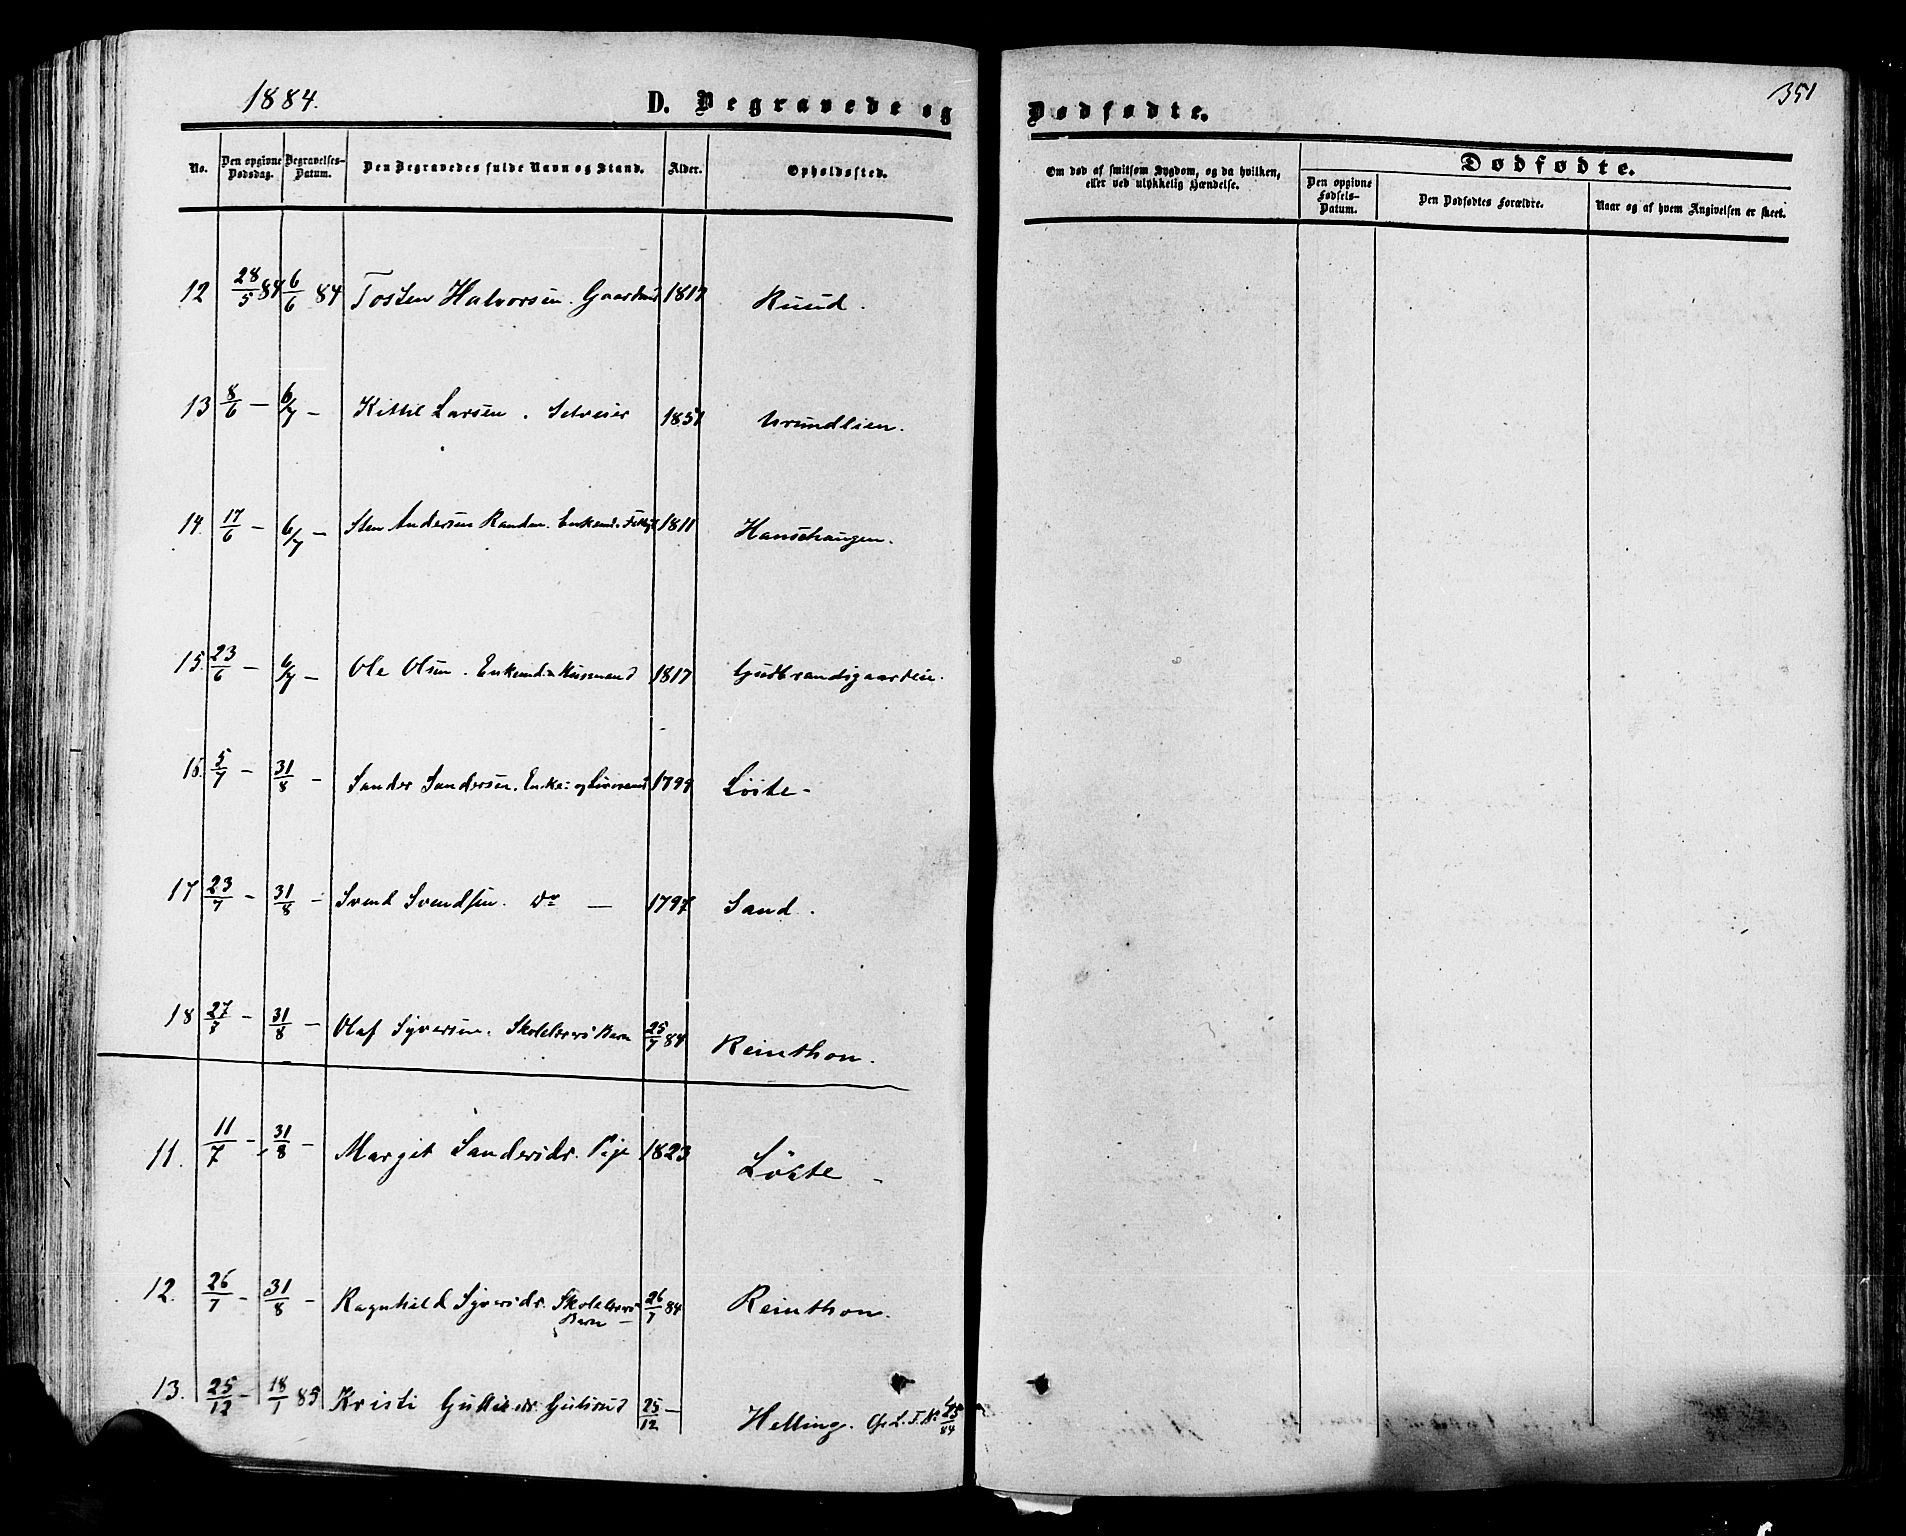 1884. D. Begravede og Dødfødte. 351
No. Den opgivne Dødsdag. Begravelses-Datum. Den Begravedes fulde Navn og Stand. Alder. Opholdssted. Om død af smitsom Sygdom, og da hvilken, eller ved ulykkelig Hændelse. Dødfødte.
Den opgivne Fødsels-Datum. Den Dødfødtes Forældre. Naar og af hvem Angivelsen er skeet.
12 28/5 84 6/6 84 Tosten Halvorsen. Gaardmd 1817 Ruud.
13 8/6 – 6/7 – Kittil Larsen. Selveier 1851 Urundlien.
14. 17/6 – 6/7 – Sten Andersen Randen. Enkemd. 1811 Hanschaugen.
15. 23/6 – 6/7 – Ole Olsen. Enkemd. Husmand 1817 Gudbrandsgaarden.
16. 5/7 – 31/8 – Sander Sandersen. Enke: og 1799 Løste –
17 23/7 – 31/8 – Svend Svendsen. Do — 1797 Sand.
18 27/7 – 31/8 – Olaf Syversen. Skolelærers Barn 25/7 84 Reinthon.
11. 11/7 – 31/8 – Margit Sandersdr. Pige 1823 Løste –
12. 26/7 – 31/8 – Ragnhild Syversdr. Skolelærers Barn – 26/7 84 Reinthon.
13. 25/12 – 18/1 85 Kristi Gulliksdr. Gulsrud 25/12 – Helling. Cfr L. T. No 45/84